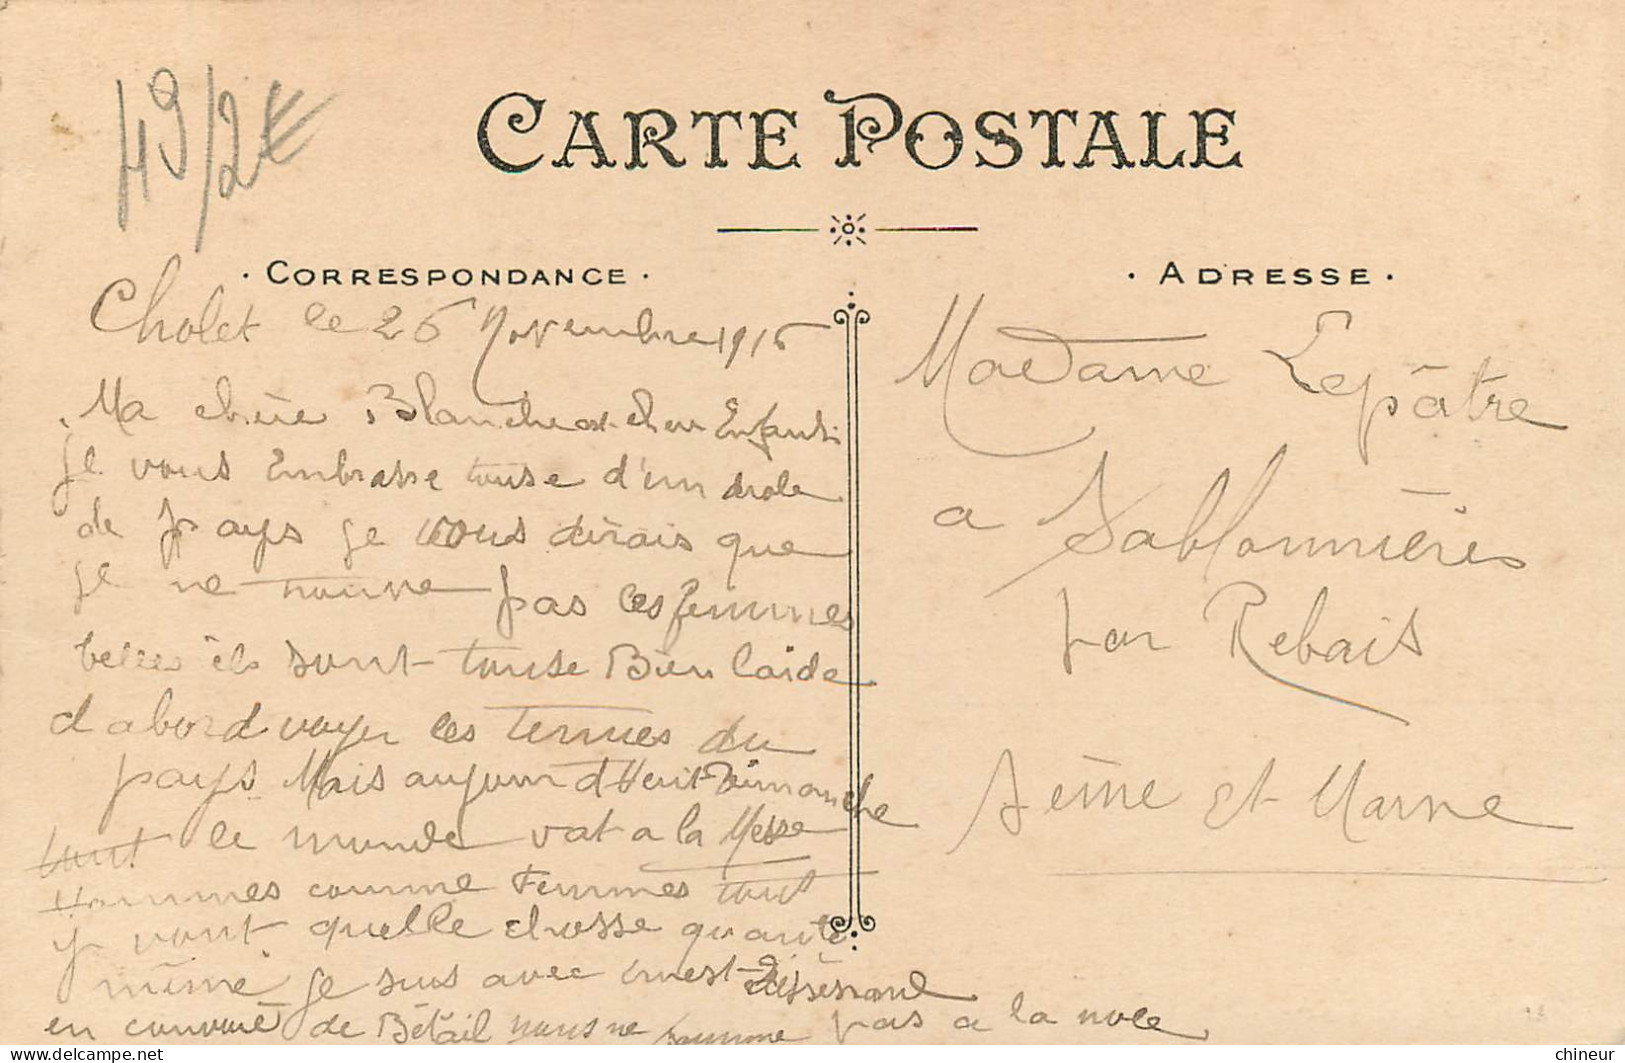 49/2€
CARTE POSTALE
· CORRESPONDANCE ·
Cholet le 26 Novembre 1916
Ma chère Blanche et cher Enfants
je vous Embrasse touse d'un drole
de pays je vous dirais que
je ne trouve pas les femmes
belles ils sont touse Bien laide
d abord voyer les termes du
pays Mais aujourd'Huit Dimanche
tout le monde vat a la Messe
Hommes comme Femmes tout
y vont quelle chosse quante
mime je sus avec Ernest
en convoie de Bétail nous ne somme pas a la noce
· ADRESSE ·
Madame Lepâtre
a Sablonnières
par Rebais
Seine et Marne
chineur © delcampe.net